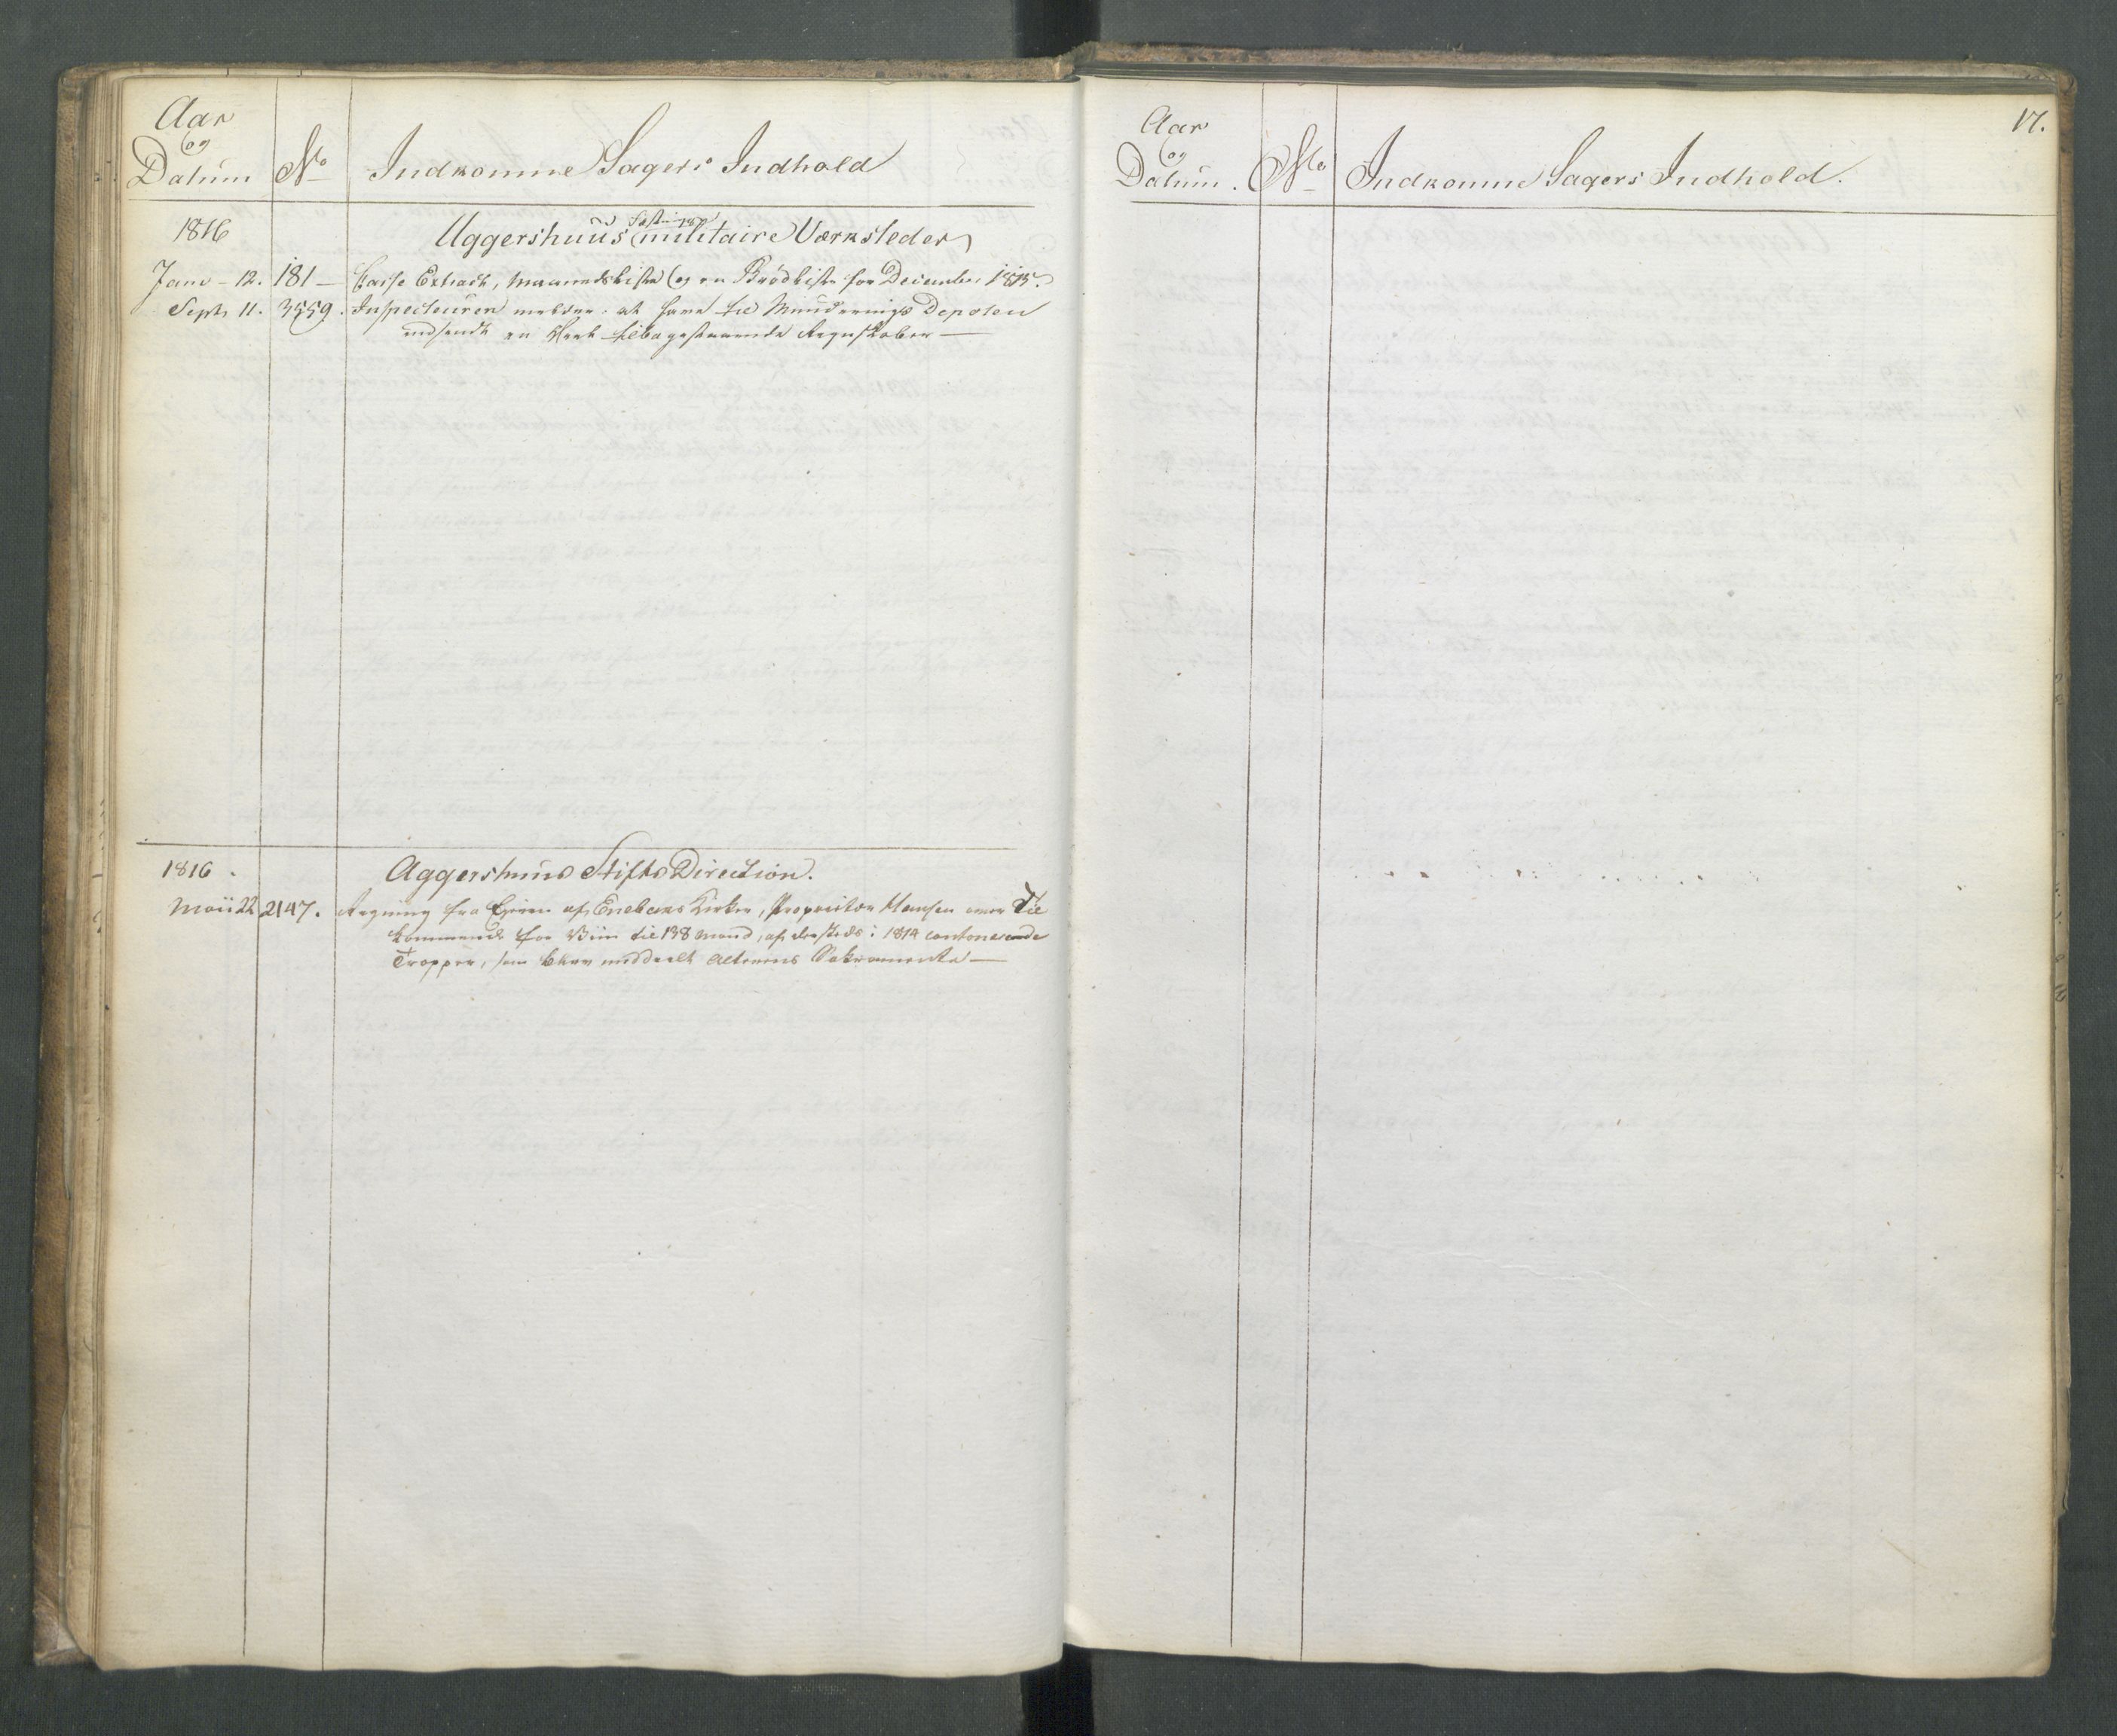 Aar
og
Datum
No
Indkomne Sagers Indhold
1816
Festnings
Aggershuus militaire Værksteder
Janr - 12. 181 — Casse Extract, Maanedsliste og en Brödliste for December 1815.
Septr 11. 3559. Inspecteuren melder, at have til Munderings Depoten
indsendt en Deel tilbagestaaende Regnskaber —
1816
Aggershuus Stifts Direction.
Maii 22 2147. Regning fra Eieren af Enebaks Kirker, Proprietær Hansen over Til
kommende for Viin til 138 Mand, af dersteds i 1814 cantonerende
Tropper, som blev meddeelt Alterens Sakramente —
17.
Aar
og
Datum.
No
Indkomne Sagers Indhold.